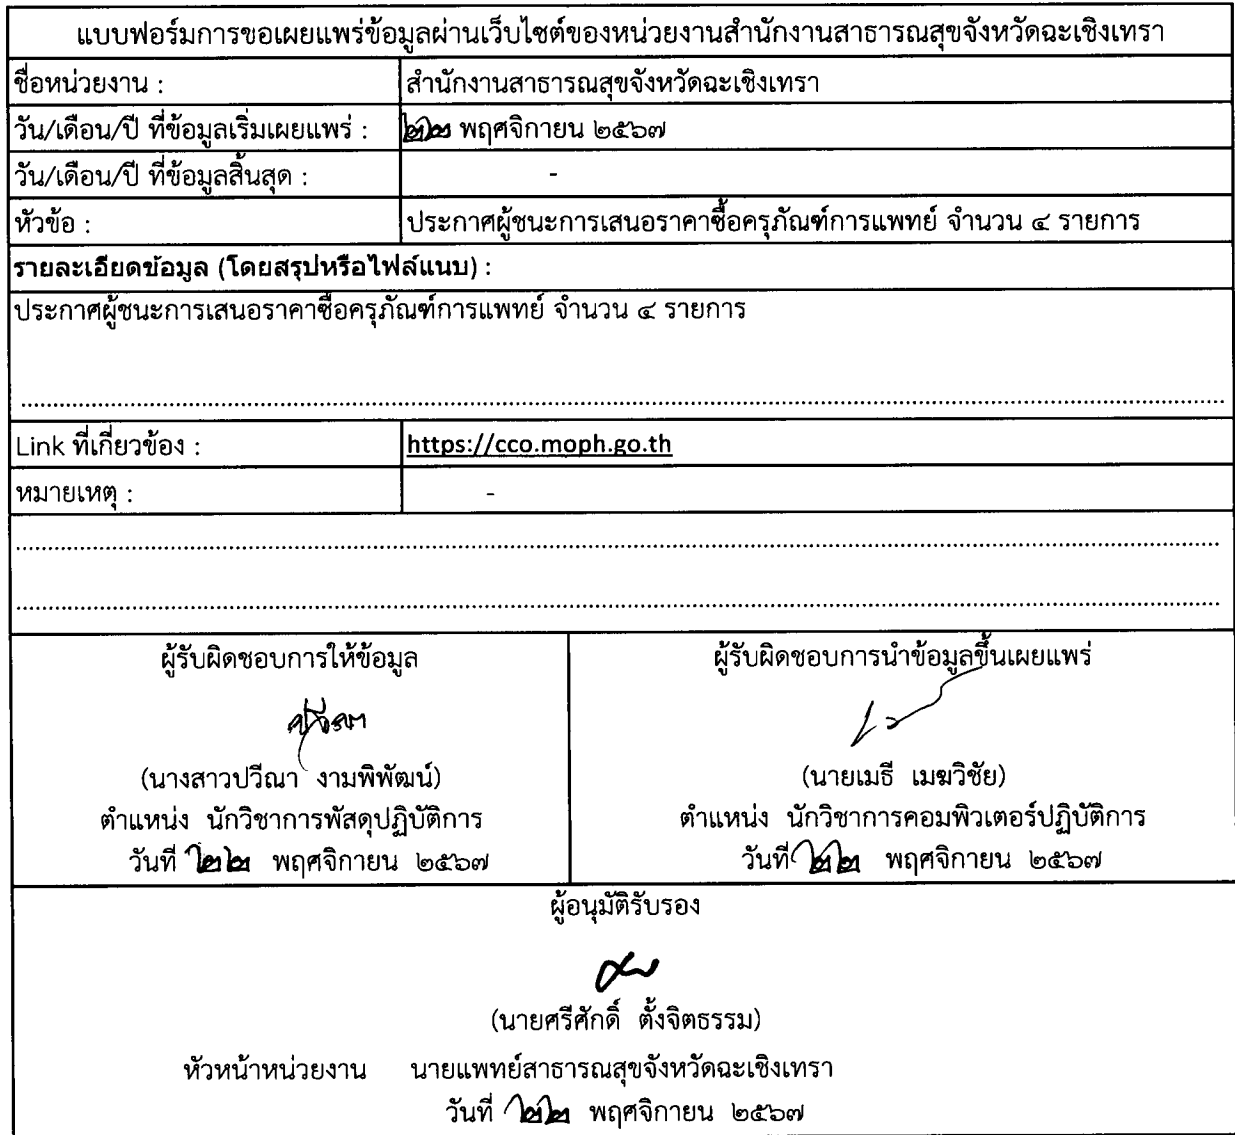 แบบฟอร์มการขอเผยแพร่ข้อมูลผ่านเว็บไซต์ของหน่วยงานสำนักงานสาธารณสุขจังหวัดฉะเชิงเทรา
ชื่อหน่วยงาน : สำนักงานสาธารณสุขจังหวัดฉะเชิงเทรา
วัน/เดือน/ปี ที่ข้อมูลเริ่มเผยแพร่ : ๒๒ พฤศจิกายน ๒๕๖๗
วัน/เดือน/ปี ที่ข้อมูลสิ้นสุด : -
หัวข้อ : ประกาศผู้ชนะการเสนอราคาซื้อครุภัณฑ์การแพทย์ จำนวน ๔ รายการ
รายละเอียดข้อมูล (โดยสรุปหรือไฟล์แนบ) :
ประกาศผู้ชนะการเสนอราคาซื้อครุภัณฑ์การแพทย์ จำนวน ๔ รายการ
Link ที่เกี่ยวข้อง : https://cco.moph.go.th
หมายเหตุ : -
ผู้รับผิดชอบการให้ข้อมูล
ปวีณา
(นางสาวปวีณา งามพิพัฒน์)
ตำแหน่ง นักวิชาการพัสดุปฏิบัติการ
วันที่ ๒๒ พฤศจิกายน ๒๕๖๗
ผู้รับผิดชอบการนำข้อมูลขึ้นเผยแพร่
(นายเมธี เมฆวิชัย)
ตำแหน่ง นักวิชาการคอมพิวเตอร์ปฏิบัติการ
วันที่ ๒๒ พฤศจิกายน ๒๕๖๗
ผู้อนุมัติรับรอง
(นายศรีศักดิ์ ตั้งจิตธรรม)
หัวหน้าหน่วยงาน นายแพทย์สาธารณสุขจังหวัดฉะเชิงเทรา
วันที่ ๒๒ พฤศจิกายน ๒๕๖๗